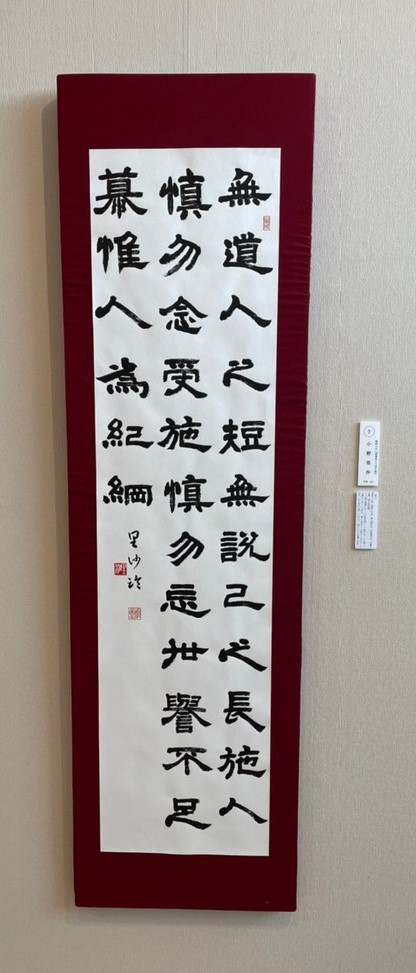 無道人之短無説己之長施人
慎勿念受施慎勿忘世譽不足
慕惟人為紀綱
里沙